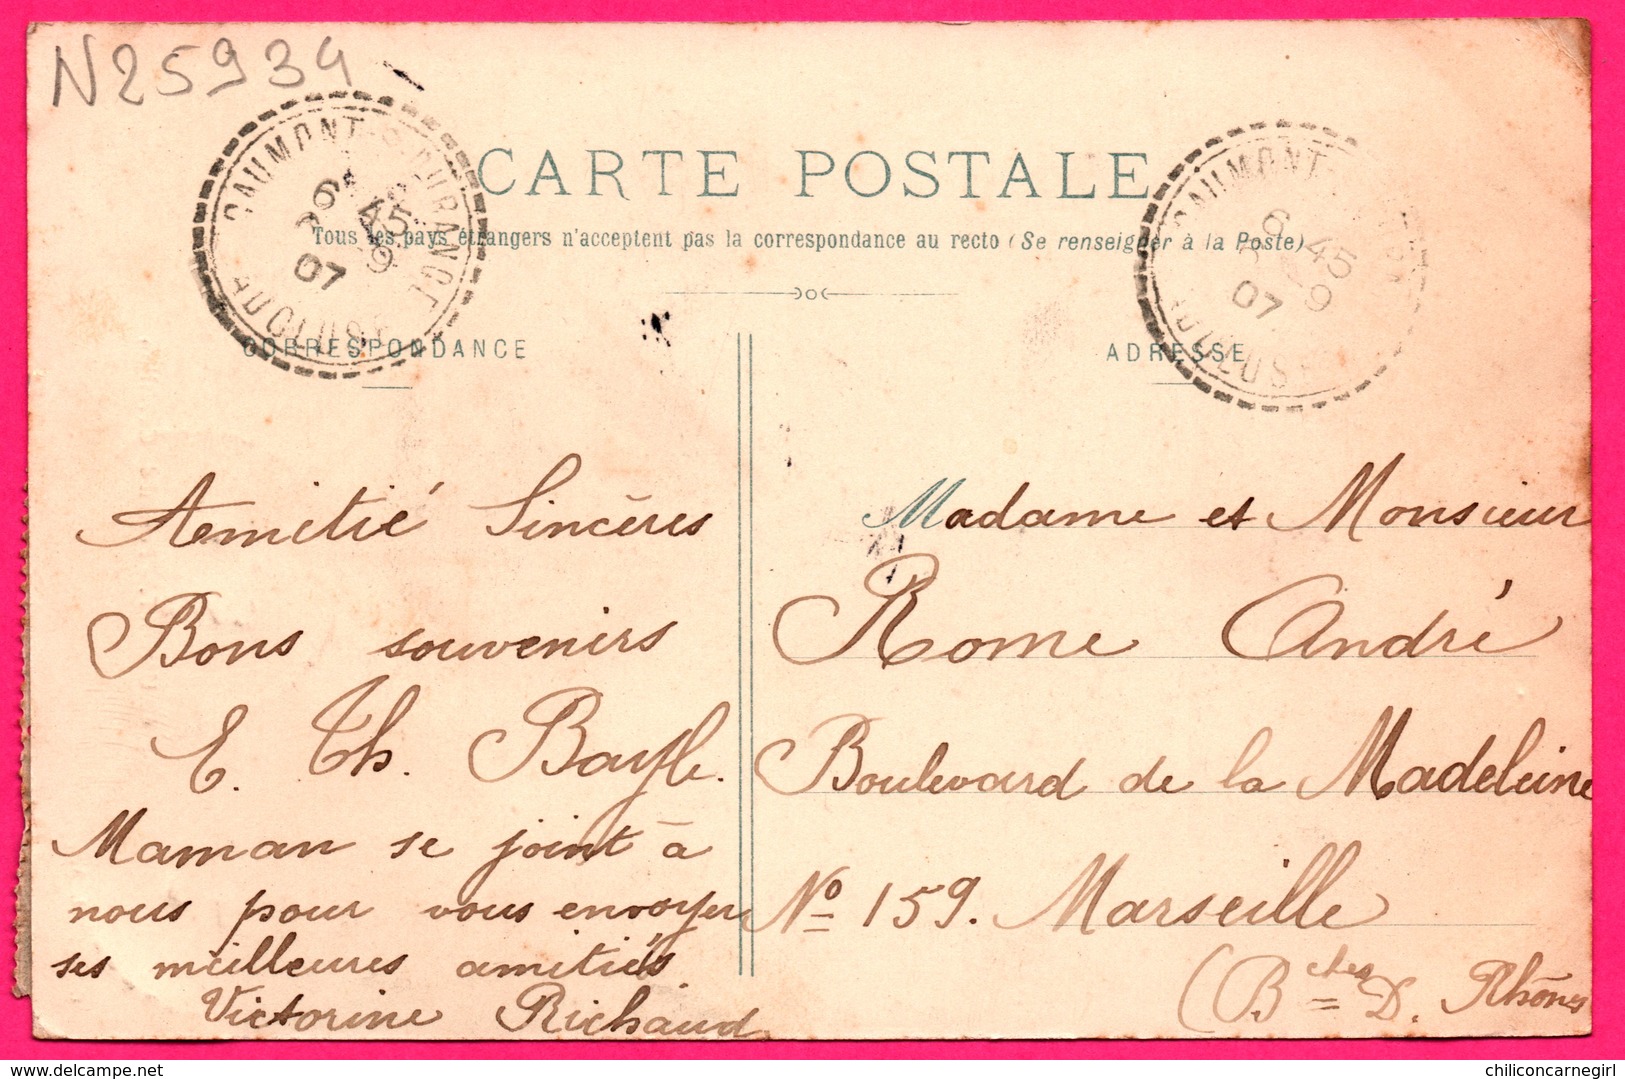 N25934
CAUMONT-S-DURANCE
6 45
9
07
VAUCLUSE
CARTE POSTALE
Tous les pays étrangers n'acceptent pas la correspondance au recto (Se renseigner à la Poste)
CAUMONT
6 45
9
07
VAUCLUSE
CORRESPONDANCE
Amitié Sincères
Bons souvenirs
E. Th. Bayle.
Maman se joint à
nous pour vous envoyer
ses meilleures amitiés
Victorine Richaud
ADRESSE
Madame et Monsieur
Rome André
Boulevard de la Madeleine
No 159. Marseille
(Bches D. Rhônes
chiliconcarnegirl